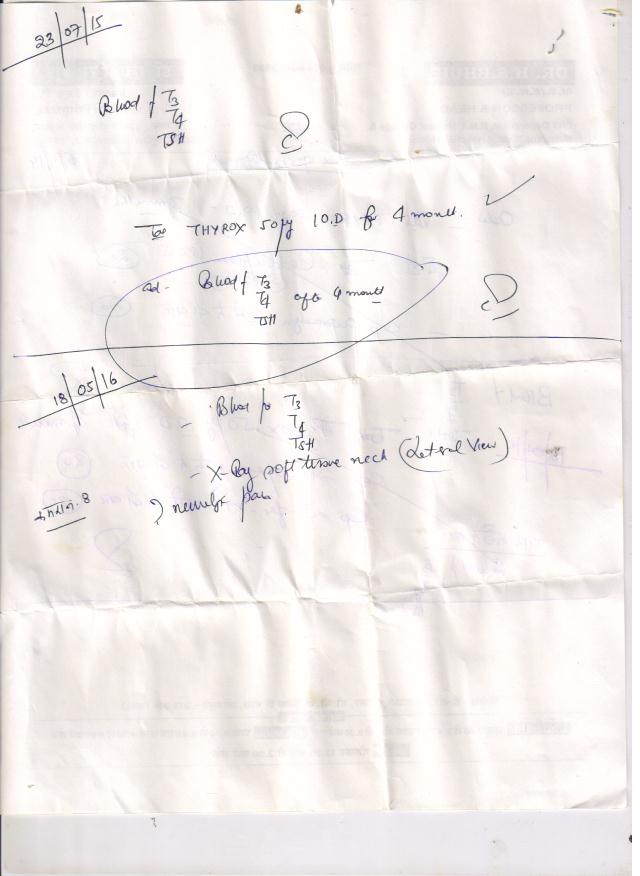 23/07/15
Blood f T3
T4
TSH
Tab THYROX 50 μg 1 O.D for 4 month.
ad - Blood f T3
T4 after 4 month
TSH
18/05/16
- Blood for T3
T4
TSH
- X-Ray soft tissue neck (Lateral View)